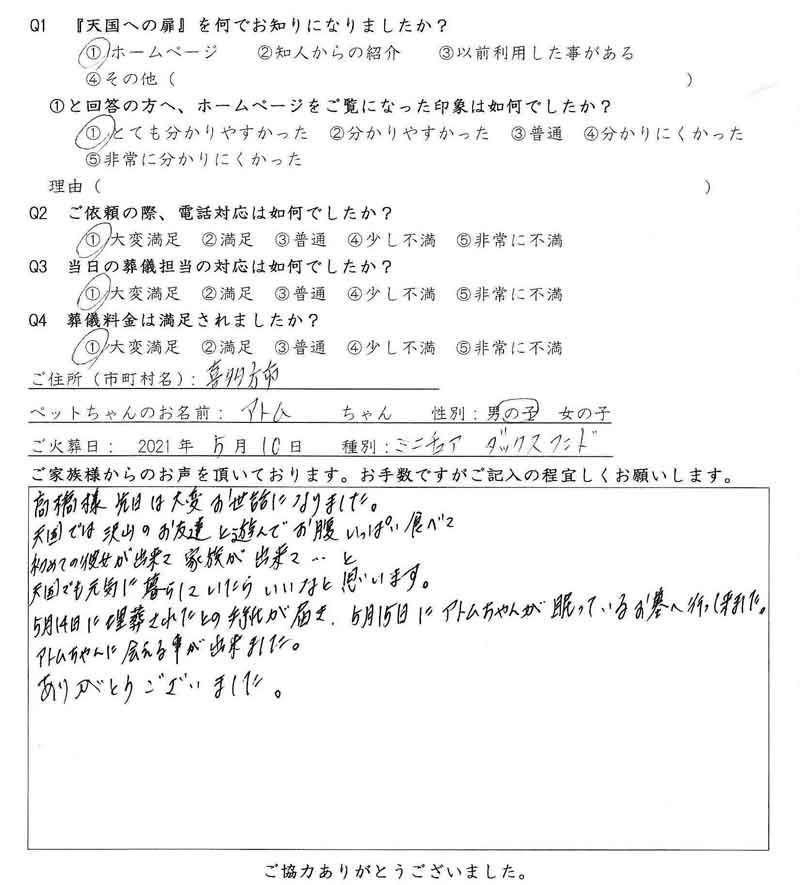 Q1 『天国への扉』を何でお知りになりましたか？
①ホームページ ②知人からの紹介 ③以前利用した事がある
④その他（ ）
①と回答の方へ、ホームページをご覧になった印象は如何でしたか？
①とても分かりやすかった ②分かりやすかった ③普通 ④分かりにくかった
⑤非常に分かりにくかった
理由（ ）
Q2 ご依頼の際、電話対応は如何でしたか？
①大変満足 ②満足 ③普通 ④少し不満 ⑤非常に不満
Q3 当日の葬儀担当の対応は如何でしたか？
①大変満足 ②満足 ③普通 ④少し不満 ⑤非常に不満
Q4 葬儀料金は満足されましたか？
①大変満足 ②満足 ③普通 ④少し不満 ⑤非常に不満
ご住所（市町村名）：喜多方市
ペットちゃんのお名前： アトム ちゃん 性別：男の子 女の子
ご火葬日： 2021年 5月 10日 種別：ミニチュア ダックスフンド
ご家族様からのお声を頂いております。お手数ですがご記入の程宜しくお願いします。
高橋様 先日は大変お世話になりました。
天国では沢山のお友達と遊んでお腹いっぱい食べて
初めての彼女が出来て 家族が出来て … と
天国でも元気に暮らしていたらいいなと思います。
5月14日に埋葬されたとの手紙が届き、5月15日にアトムちゃんが眠っているお墓へ行って来ました。
アトムちゃんに会える事が出来ました。
ありがとうございました。
ご協力ありがとうございました。